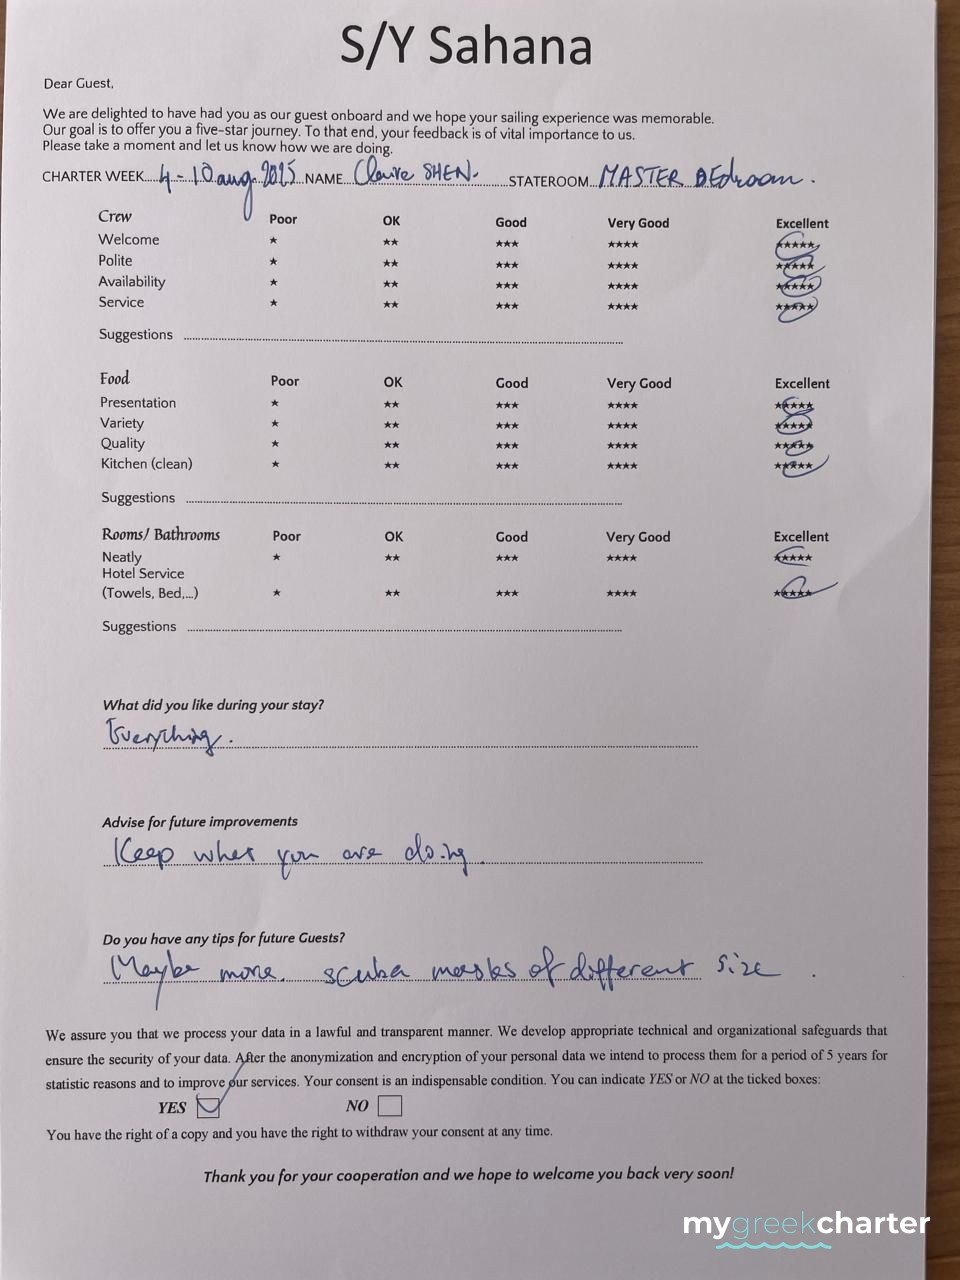 S/Y Sahana
Dear Guest,
We are delighted to have had you as our guest onboard and we hope your sailing experience was memorable.
Our goal is to offer you a five-star journey. To that end, your feedback is of vital importance to us.
Please take a moment and let us know how we are doing.
CHARTER WEEK....4 - 10 aug 2025..NAME...Claire SHEN.............STATEROOM...MASTER BEdroom.
Crew Poor OK Good Very Good Excellent
Welcome ★ ★★ ★★★ ★★★★ ★★★★★
Polite ★ ★★ ★★★ ★★★★ ★★★★★
Availability ★ ★★ ★★★ ★★★★ ★★★★★
Service ★ ★★ ★★★ ★★★★ ★★★★★
Suggestions ........................................
Food Poor OK Good Very Good Excellent
Presentation ★ ★★ ★★★ ★★★★ ★★★★★
Variety ★ ★★ ★★★ ★★★★ ★★★★★
Quality ★ ★★ ★★★ ★★★★ ★★★★★
Kitchen (clean) ★ ★★ ★★★ ★★★★ ★★★★★
Suggestions ........................................
Rooms/ Bathrooms Poor OK Good Very Good Excellent
Neatly ★ ★★ ★★★ ★★★★ ★★★★★
Hotel Service
(Towels, Bed,...) ★ ★★ ★★★ ★★★★ ★★★★★
Suggestions ........................................
What did you like during your stay?
Everything.
Advise for future improvements
Keep what you are doing.
Do you have any tips for future Guests?
Maybe more scuba masks of different size.
We assure you that we process your data in a lawful and transparent manner. We develop appropriate technical and organizational safeguards that
ensure the security of your data. After the anonymization and encryption of your personal data we intend to process them for a period of 5 years for
statistic reasons and to improve our services. Your consent is an indispensable condition. You can indicate YES or NO at the ticked boxes:
YES NO
You have the right of a copy and you have the right to withdraw your consent at any time.
Thank you for your cooperation and we hope to welcome you back very soon!
mygreekcharter